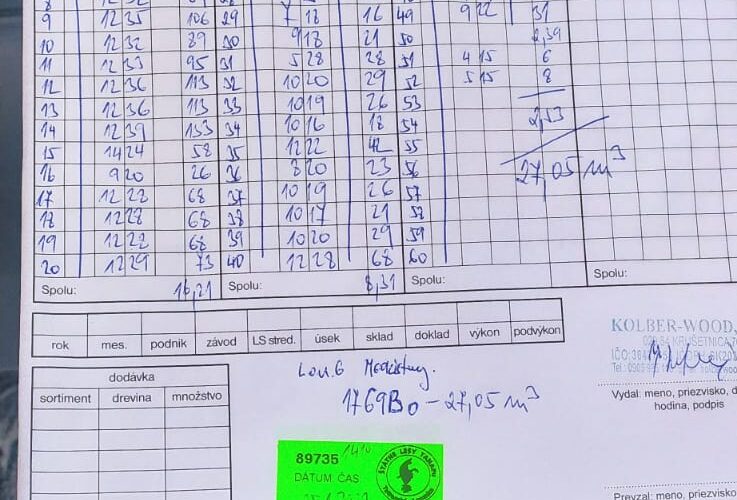 9 12 35 106 29 7 18 16 49 9 22 31
10 12 32 89 30 9 18 21 50 2,39
11 12 33 95 31 5 28 28 51 4 15 6
12 12 36 113 32 10 20 29 52 5 15 8
13 12 36 113 33 10 19 26 53
14 12 39 133 34 10 16 18 54 2,53
15 14 24 58 35 12 22 42 55
16 9 20 26 36 8 20 23 56 27,05 m³
17 12 28 68 37 10 19 26 57
18 12 28 68 38 10 17 21 58
19 12 28 68 39 10 20 29 59
20 12 29 73 40 12 28 68 60
Spolu: 16,21 Spolu: 8,31 Spolu: Spolu:
rok mes. podnik závod LS stred. úsek sklad doklad výkon podvýkon
KOLBER-WOOD,
dodávka
sortiment drevina množstvo
1769B0 – 27,05 m³
Vydal: meno, priezvisko, d
hodina, podpis
89735
DÁTUM ČAS
ŠTÁTNE LESY TANAPu
Prevzal: meno, priezvisko